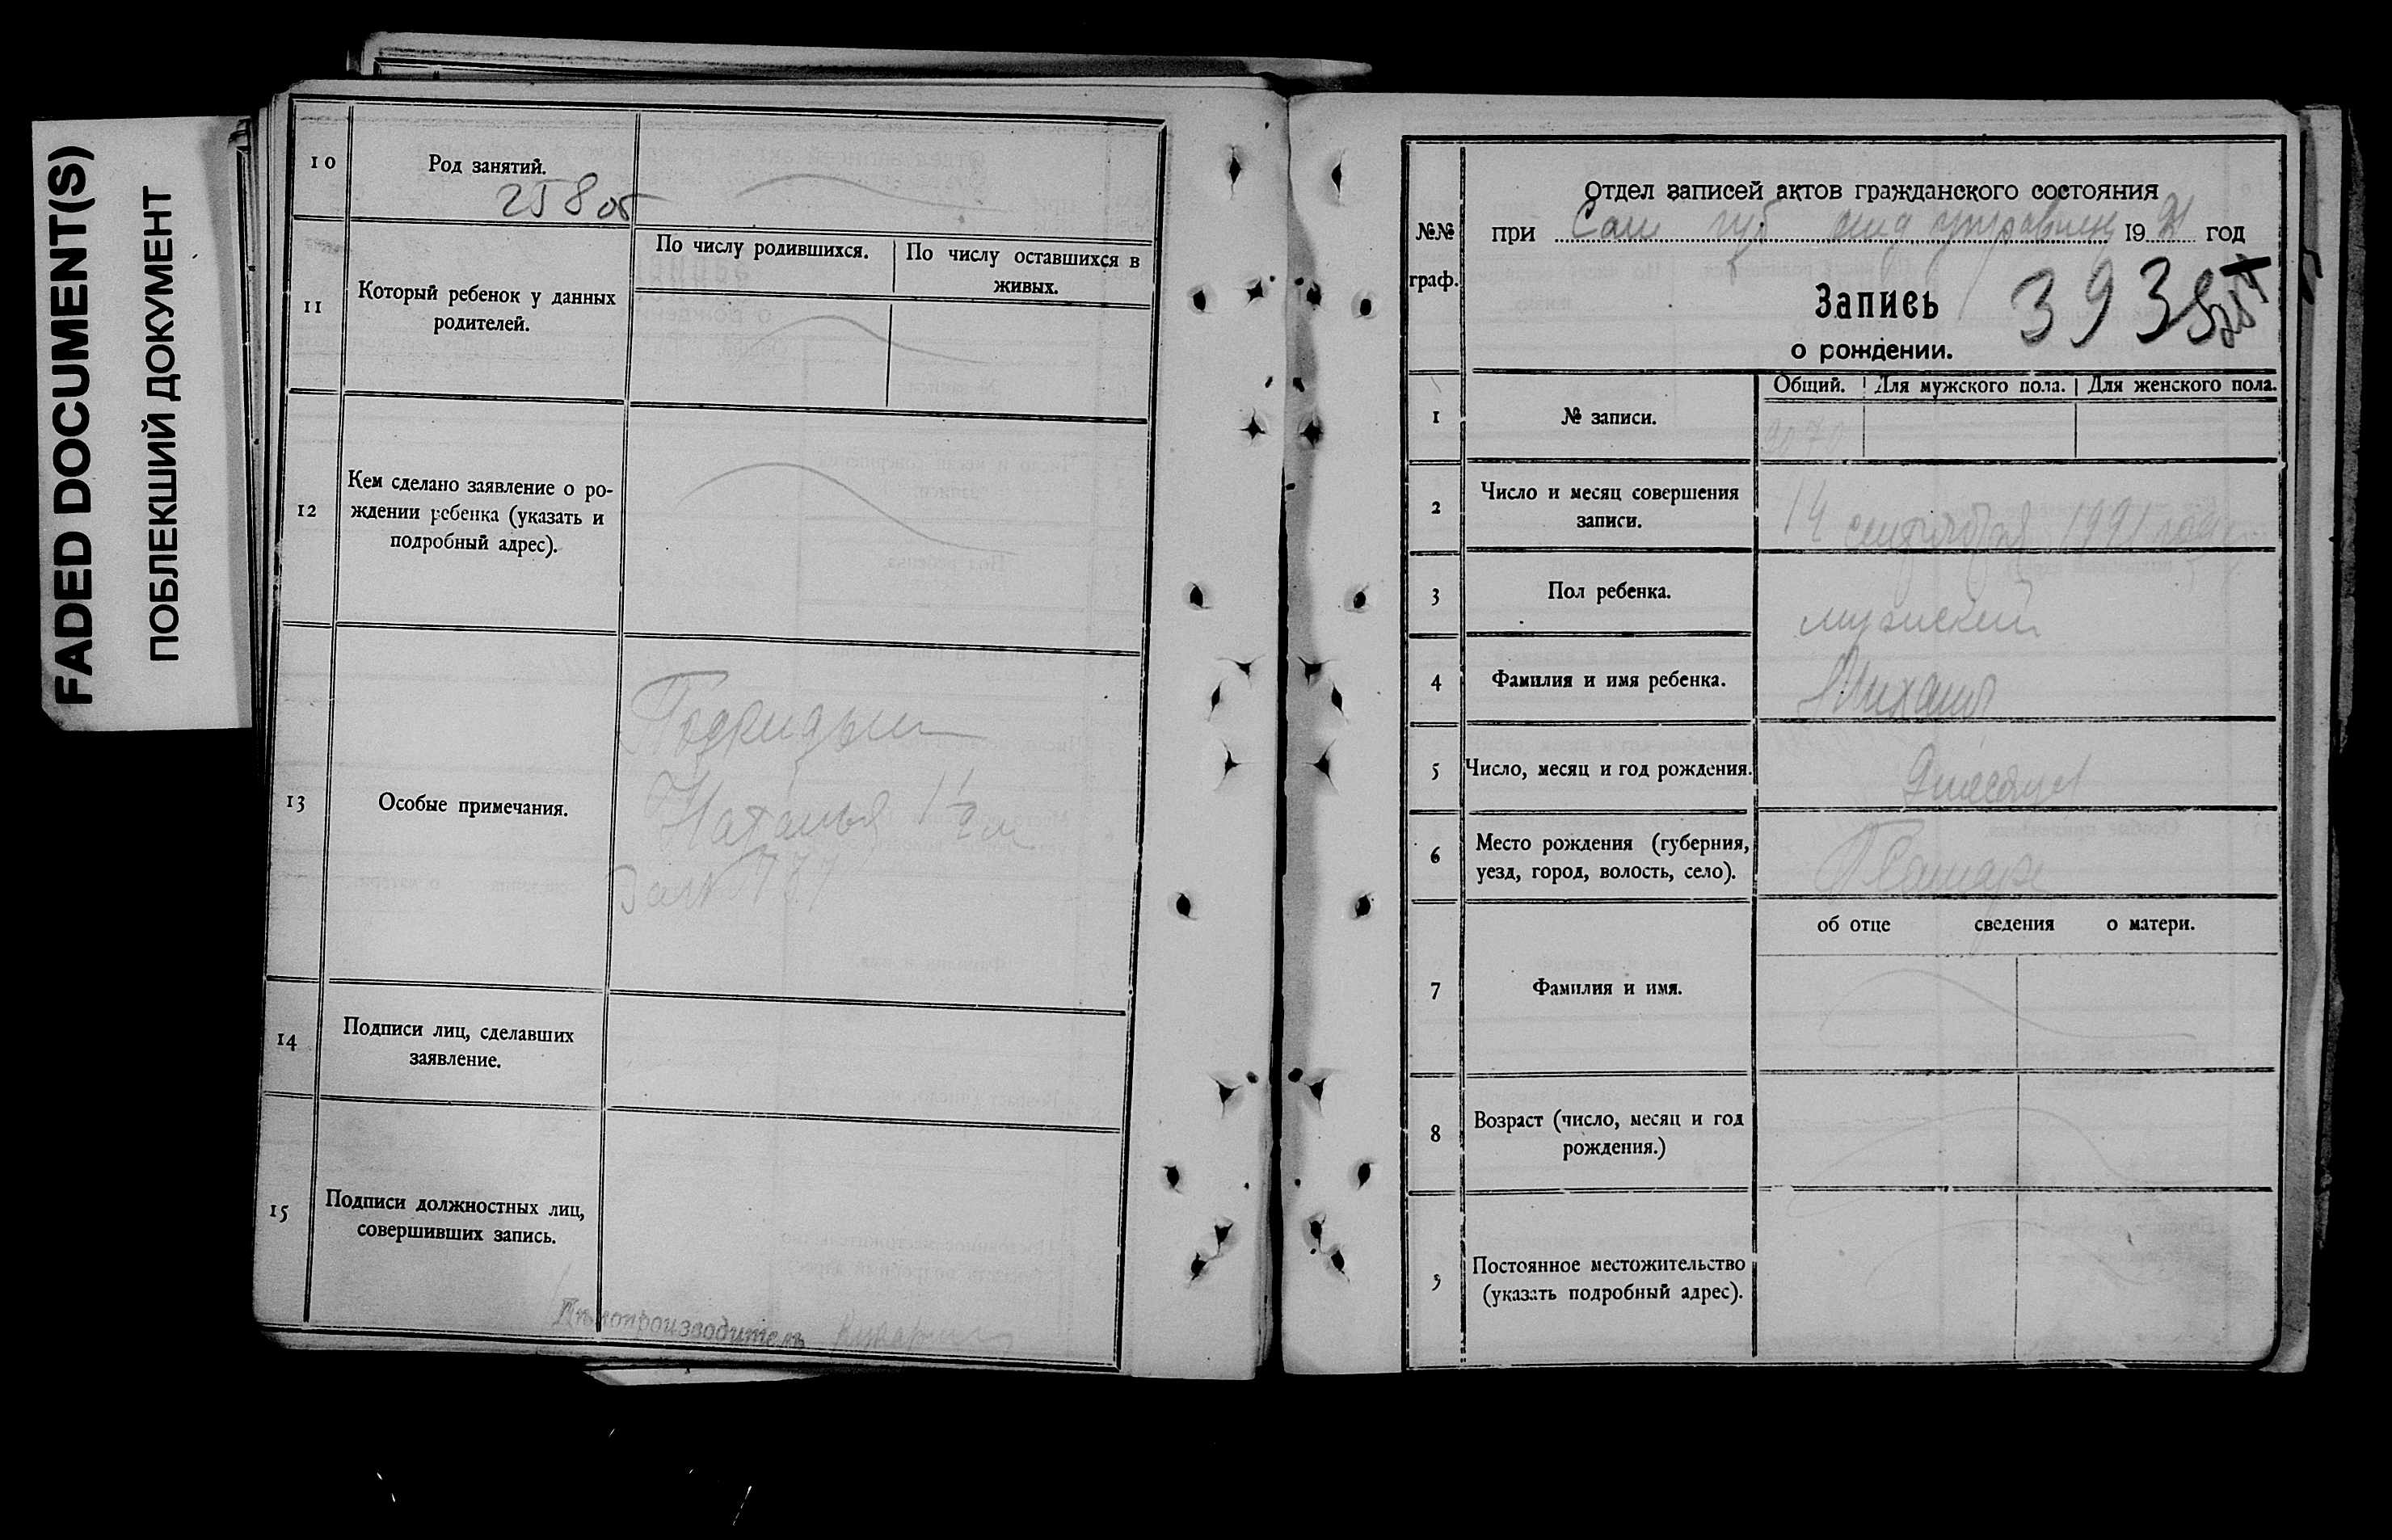 FADED DOCUMENT(S)
ПОБЛЕКШИЙ ДОКУМЕНТ
10
Род занятий.
258 об
11
Который ребенок у данных
родителей.
По числу родившихся.
По число оставшихся в
живых.
12
Кем сделано заявление о ро-
ждении ребенка (указать и
подробный адрес).
13
Особые примечания.
Подкидыш
Наталья 1 1/2 м
14
Подписи лиц, сделавших
заявление.
15
Подписи должностных лиц,
совершивших запись.
Делопроизводитель
№№
граф.
Отдел записей актов гражданского состояния
при Сам губ 1921 год
Запись
о рождении.
393
1
№ записи.
Общий.
Для мужского пола.
Для женского пола.
2
Число и месяц совершения
записи.
14 сентября 1921 года
3
Пол ребенка.
мужской
4
Фамилия и имя ребенка.
Михаил
5
Число, месяц и год рождения.
6
Место рождения (губерния,
уезд, город, волость, село).
Г Самара
об отце сведения о матери.
7
Фамилия и имя.
8
Возраст (число, месяц и год
рождения.)
9
Постоянное местожительство
(указать подробный адрес).